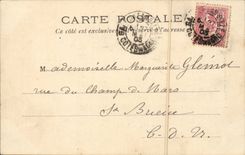 CARTE POSTALE
Ce côté est exclusivement réservé à l'adresse
Mademoiselle Marguerite Glémot
rue du Champ de Mars
St Brieuc
C. D. N